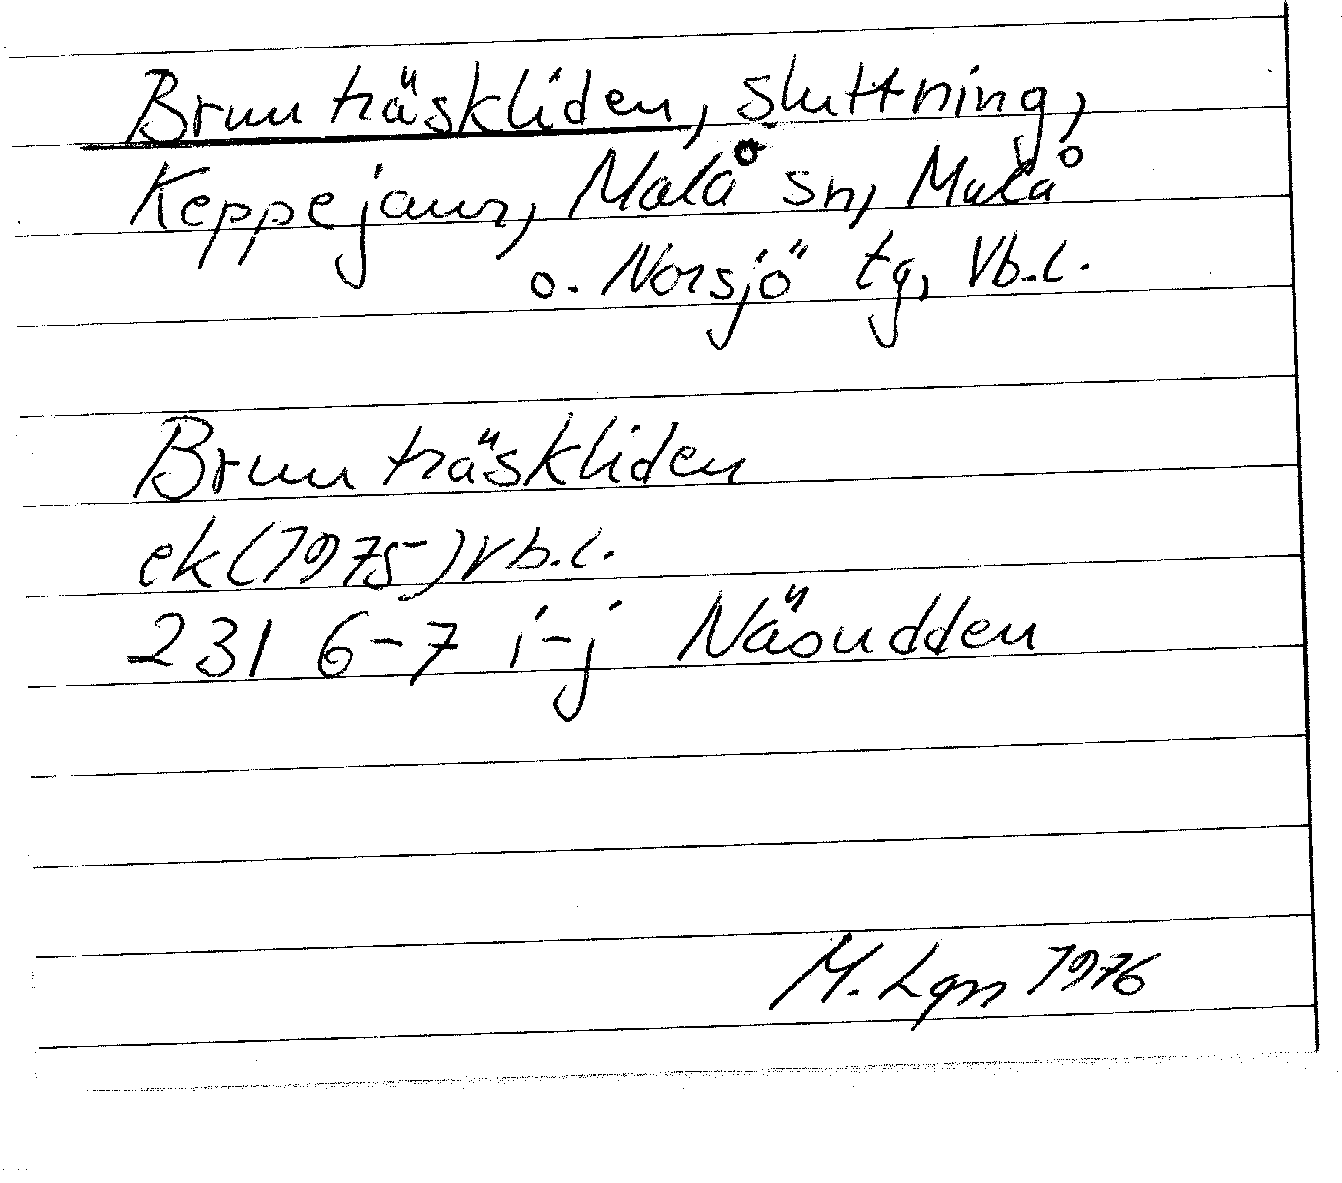 Brunträskliden, sluttning,
Keppejaur, Malå sn, Malå
o. Norsjö tg, Vb.l.
Brunträskliden
ek(1975)Vb.l.
231 6-7 i-j Näsudden
M. Lgn 1976